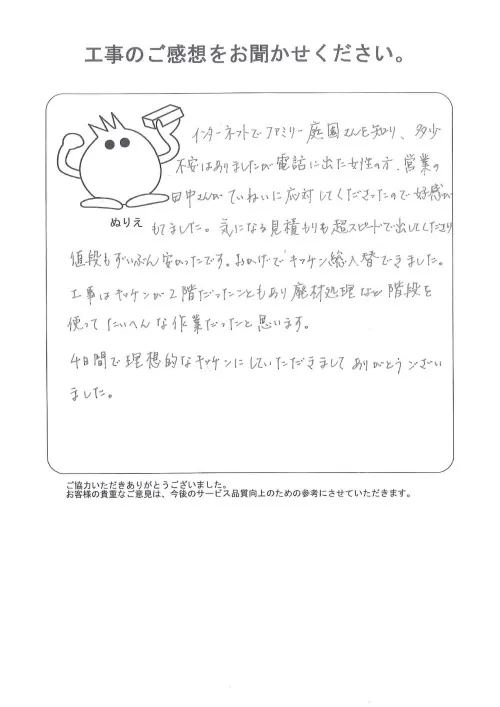 工事のご感想をお聞かせください。
インターネットでファミリー庭園さんを知り、多少
不安はありましたが電話に出た女性の方、営業の
田中さんがていねいに応対してくださったので好感が
ぬりえ
もてました。気になる見積もりも超スピードで出してくださり
値段もずいぶん安かったです。おかげでキッチン総入替できました。
工事はキッチンが2階だったこともあり廃材処理など階段を
使ってたいへんな作業だったと思います。
4日間で理想的なキッチンにしていただきましてありがとうござい
ました。
ご協力いただきありがとうございました。
お客様の貴重なご意見は、今後のサービス品質向上のための参考にさせていただきます。